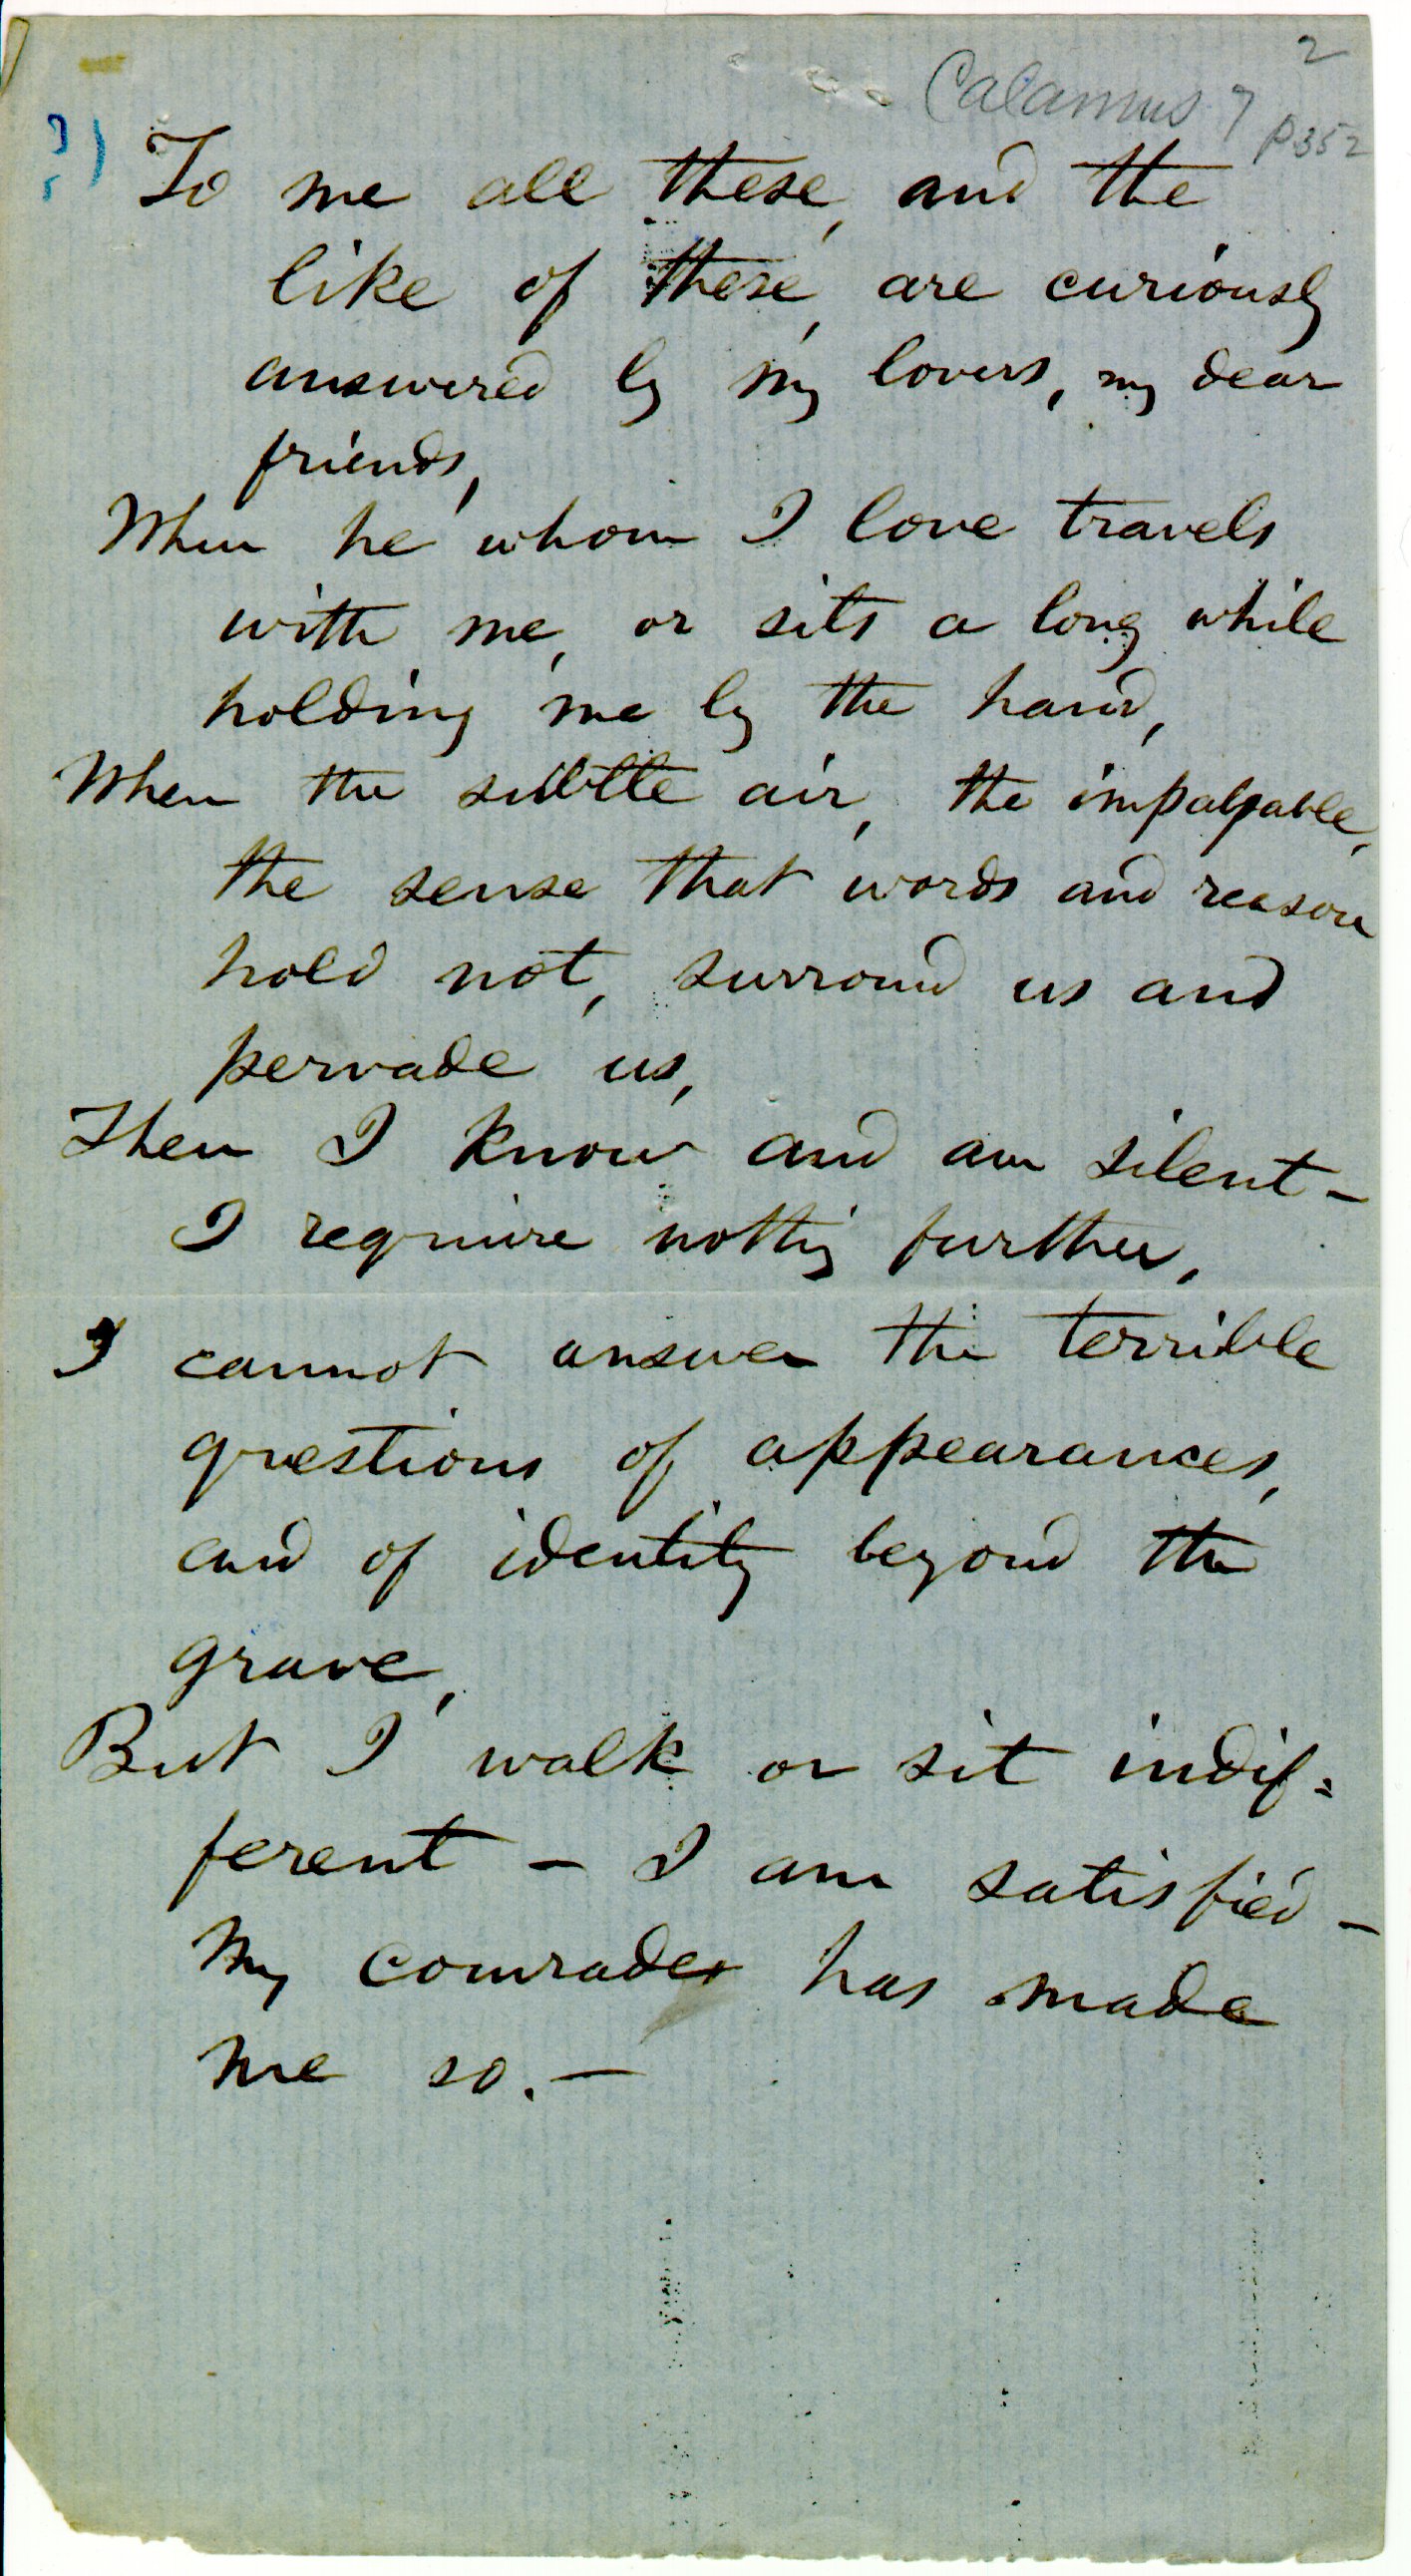 2
Calamus 7
p352
To me all these, and the
like of these, are curiously
answered by my lovers, my dear
friends,
When he whom I love travels
with me, or sits a long while
holding me by the hand,
When the subtle air, the impalpable,
the sense that words and reason
hold not, surround us and
pervade us,
Then I know and am silent –
I require nothing further,
I cannot answer the terrible
questions of appearances,
and of identity beyond the
grave,
But I walk or sit indif-
ferent – I am satisfied –
My comrades has made
me so. —